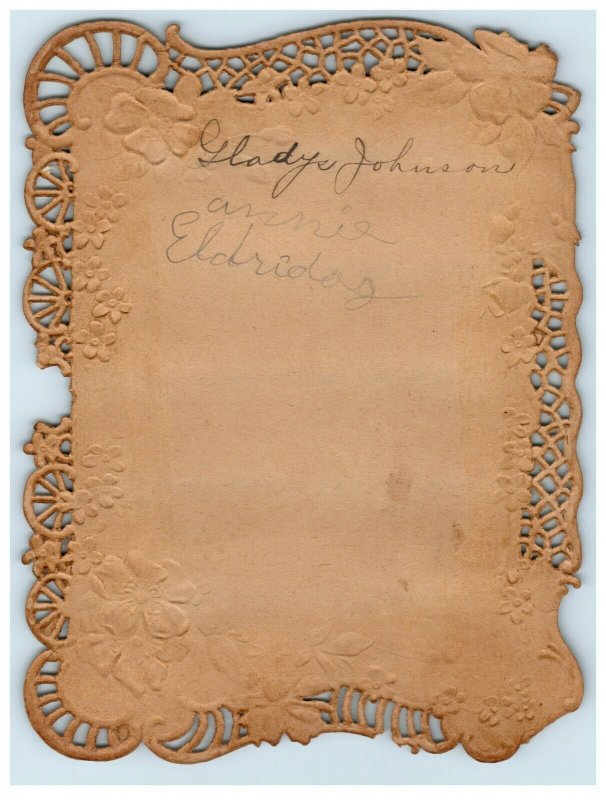 Gladys Johnson
annie
Eldridag